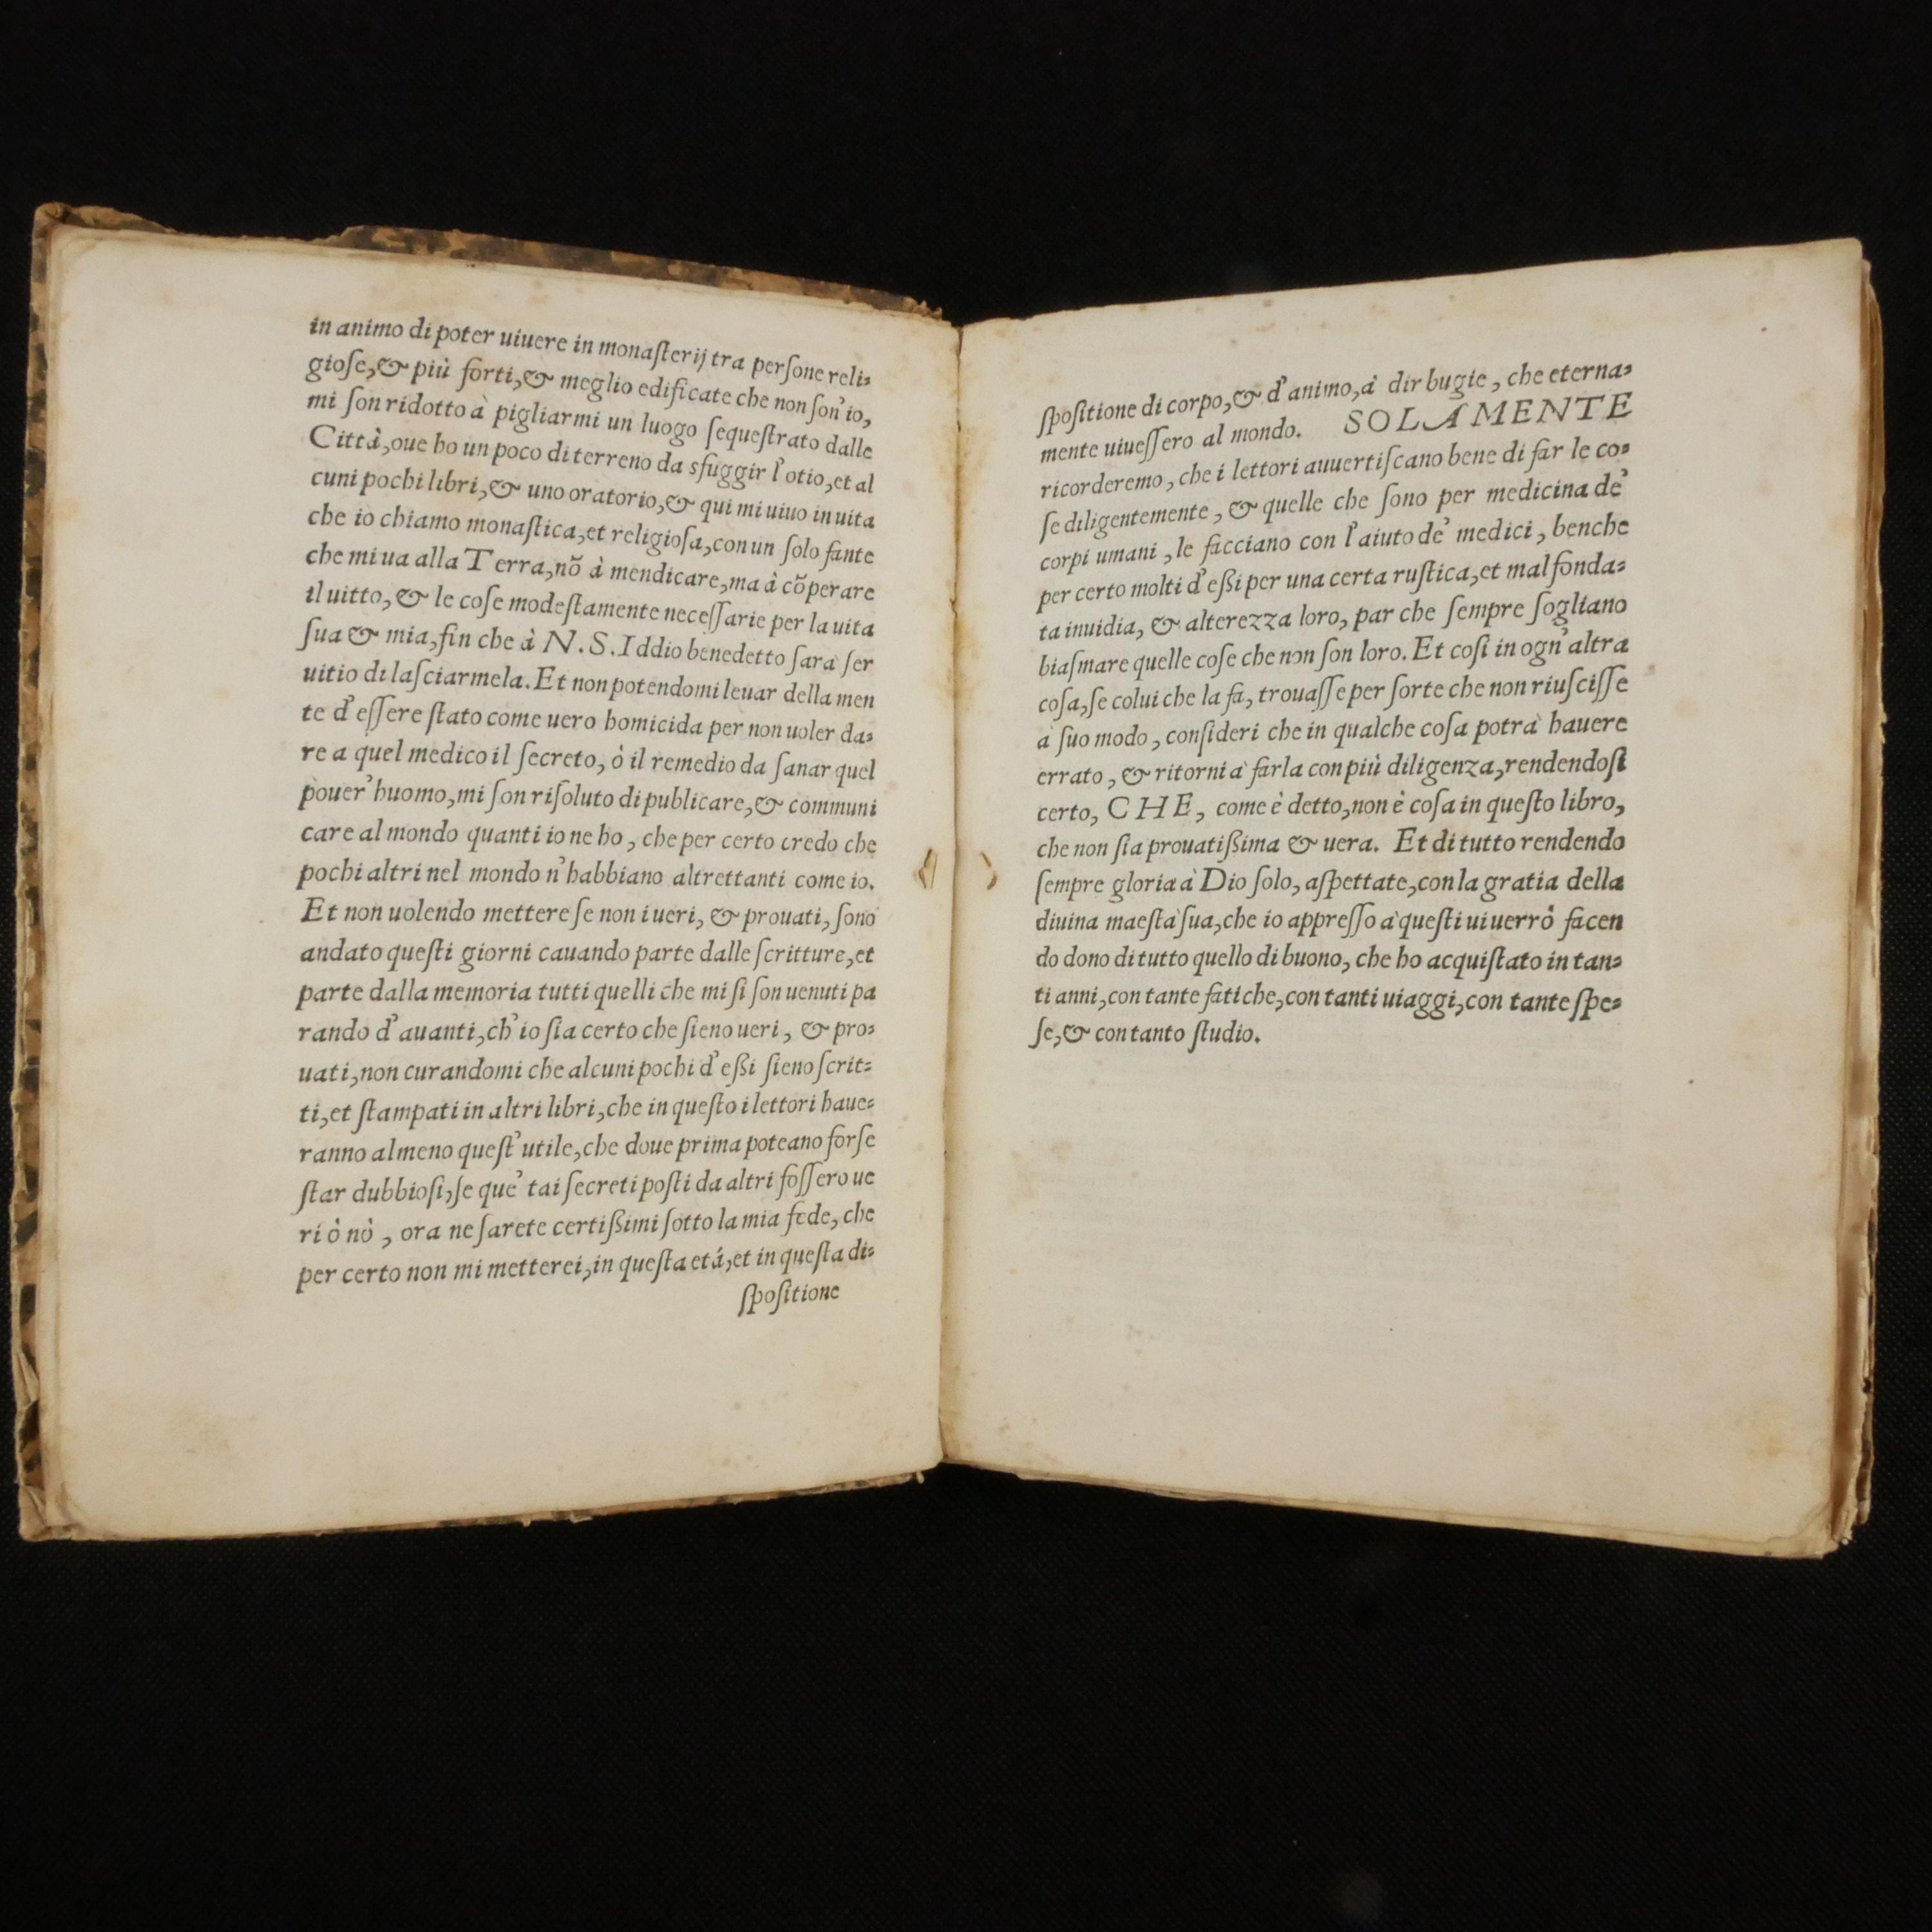 in animo di poter uiuere in monaſterij tra perſone reli⸗
gioſe,& più forti,& meglio edificate che non ſon'io,
mi ſon ridotto à pigliarmi un luogo ſequeſtrato dalle
Città,oue ho un poco di terreno da sfuggir l'otio,et al
cuni pochi libri,& uno oratorio,& qui mi uiuo in uita
che io chiamo monaſtica,et religioſa,con un ſolo fante
che mi ua alla Terra,nõ à mendicare,ma à cõperare
il uitto,& le coſe modeſtamente neceſſarie per la uita
ſua & mia,fin che à N.S.Iddio benedetto ſarà ſer
uitio di laſciarmela.Et non potendomi leuar della men
te d'eſſere ſtato come uero homicida per non uoler da⸗
re a quel medico il ſecreto, ò il remedio da ſanar quel
pouer'huomo,mi ſon riſoluto di publicare,& communi
care al mondo quanti io ne ho, che per certo credo che
pochi altri nel mondo n'habbiano altrettanti come io.
Et non uolendo mettere ſe non i ueri, & prouati, ſono
andato queſti giorni cauando parte dalle ſcritture,et
parte dalla memoria tutti quelli che mi ſi ſon uenuti pa
rando d'auanti,ch'io ſia certo che ſieno ueri, & pro⸗
uati,non curandomi che alcuni pochi d'eßi ſieno ſcrit⸗
ti,et ſtampati in altri libri,che in queſto i lettori haue⸗
ranno almeno queſt'utile,che doue prima poteano forſe
ſtar dubbioſi,ſe que' tai ſecreti poſti da altri foſſero ue
ri ò nò, ora ne ſarete certißimi ſotto la mia fede, che
per certo non mi metterei,in queſta età,et in queſta di⸗
ſpoſitione
ſpoſitione di corpo,& d'animo,à dir bugie, che eterna⸗
mente uiueſſero al mondo. SOLAMENTE
ricorderemo, che i lettori auuertiſcano bene di far le co⸗
ſe diligentemente, & quelle che ſono per medicina de'
corpi umani, le facciano con l'aiuto de' medici, benche
per certo molti d'eßi per una certa ruſtica,et mal fonda⸗
ta inuidia, & alterezza loro, par che ſempre ſogliano
biaſmare quelle coſe che non ſon loro. Et coſi in ogn'altra
coſa,ſe colui che la fa, trouaſſe per ſorte che non riuſciſſe
à ſuo modo, conſideri che in qualche coſa potrà hauere
errato, & ritorni à farla con più diligenza,rendendoſi
certo, CHE, come è detto,non è coſa in queſto libro,
che non ſia prouatißima & uera. Et di tutto rendendo
ſempre gloria à Dio ſolo, aſpettate,con la gratia della
diuina maeſtà ſua,che io appreſſo à queſti ui uerrò facen
do dono di tutto quello di buono, che ho acquiſtato in tan⸗
ti anni,con tante fatiche,con tanti uiaggi,con tante ſpe⸗
ſe,& con tanto ſtudio.